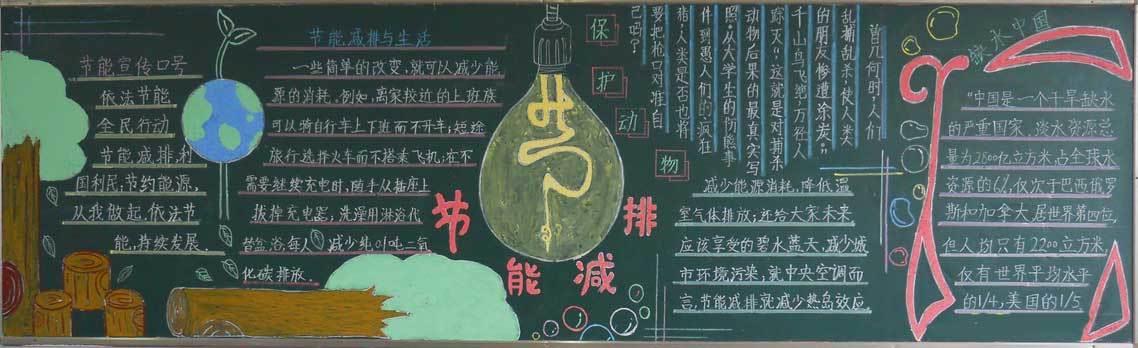 节能宣传口号
依法节能
全民行动
节能减排,利
国利民;节约能源,
从我做起,依法节
能,持续发展.
节能减排与生活
一些简单的改变,就可以减少能
源的消耗.例如,离家较近的上班族
可以骑自行车上下班而不开车;短途
旅行选择火车而不搭乘飞机;在不
需要继续充电时,随手从插座上
拔掉充电器;洗澡用淋浴代
替盆浴,每人
减少纯0.1吨二氧
化碳排放.
节能减排
保护动物
曾几何时,人们
乱捕乱杀,使人类
的朋友惨遭涂炭。“
千山鸟飞绝,万径人
踪灭”,这就是对捕杀
动物后果的最真实写
照。从大学生的伤熊事
件到愚人们的疯狂
猎,人类是否也将
要把枪口对准自
己吗?
减少能源消耗,降低温
室气体排放;还给大家未来
应该享受的碧水蓝天,减少城
市环境污染,就中央空调而
言,节能减排就减少热岛效应.
缺水中国
“中国是一个干旱缺水
的严重国家.淡水资源总
量为2800亿立方米,占全球水
资源的6%,仅次于巴西俄罗
斯和加拿大,居世界第四位,
但人均只有2200立方米,
仅有世界平均水平
的1/4,美国的1/5